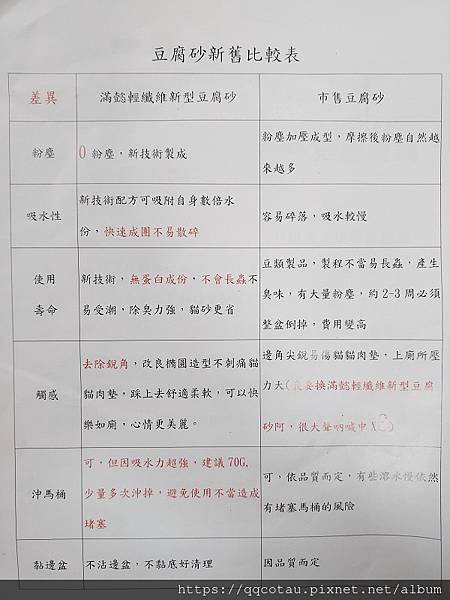 豆腐砂新舊比較表
差異
滿懿輕纖維新型豆腐砂
市售豆腐砂
粉塵
0 粉塵，新技術製成
粉塵加壓成型，摩擦後粉塵自然越
來越多
吸水性
新技術配方可吸附自身數倍水
份，快速成團不易散碎
容易碎落，吸水較慢
使用
壽命
新技術，無蛋白成份，不會長蟲不
易受潮，除臭力強，貓砂更省
豆類製品，製程不當易長蟲，產生
臭味，有大量粉塵，約 2-3 周必須
整盆倒掉，費用變高
觸感
去除銳角，改良橢圓造型不刺痛貓
貓肉墊，踩上去舒適柔軟，可以快
樂如廁，心情更美麗。
邊角尖銳易傷貓貓肉墊，上廁所壓
力大(我要換滿懿輕纖維新型豆腐
砂阿，很大聲吶喊中 X3)
沖馬桶
可，但因吸水力超強，建議 70G,
少量多次沖掉，避免使用不當造成
堵塞
可，依品質而定，有些溶水慢依然
有堵塞馬桶的風險
黏邊盆
不沾邊盆，不黏底好清理
因品質而定
https://qqcotau.pixnet.net/album